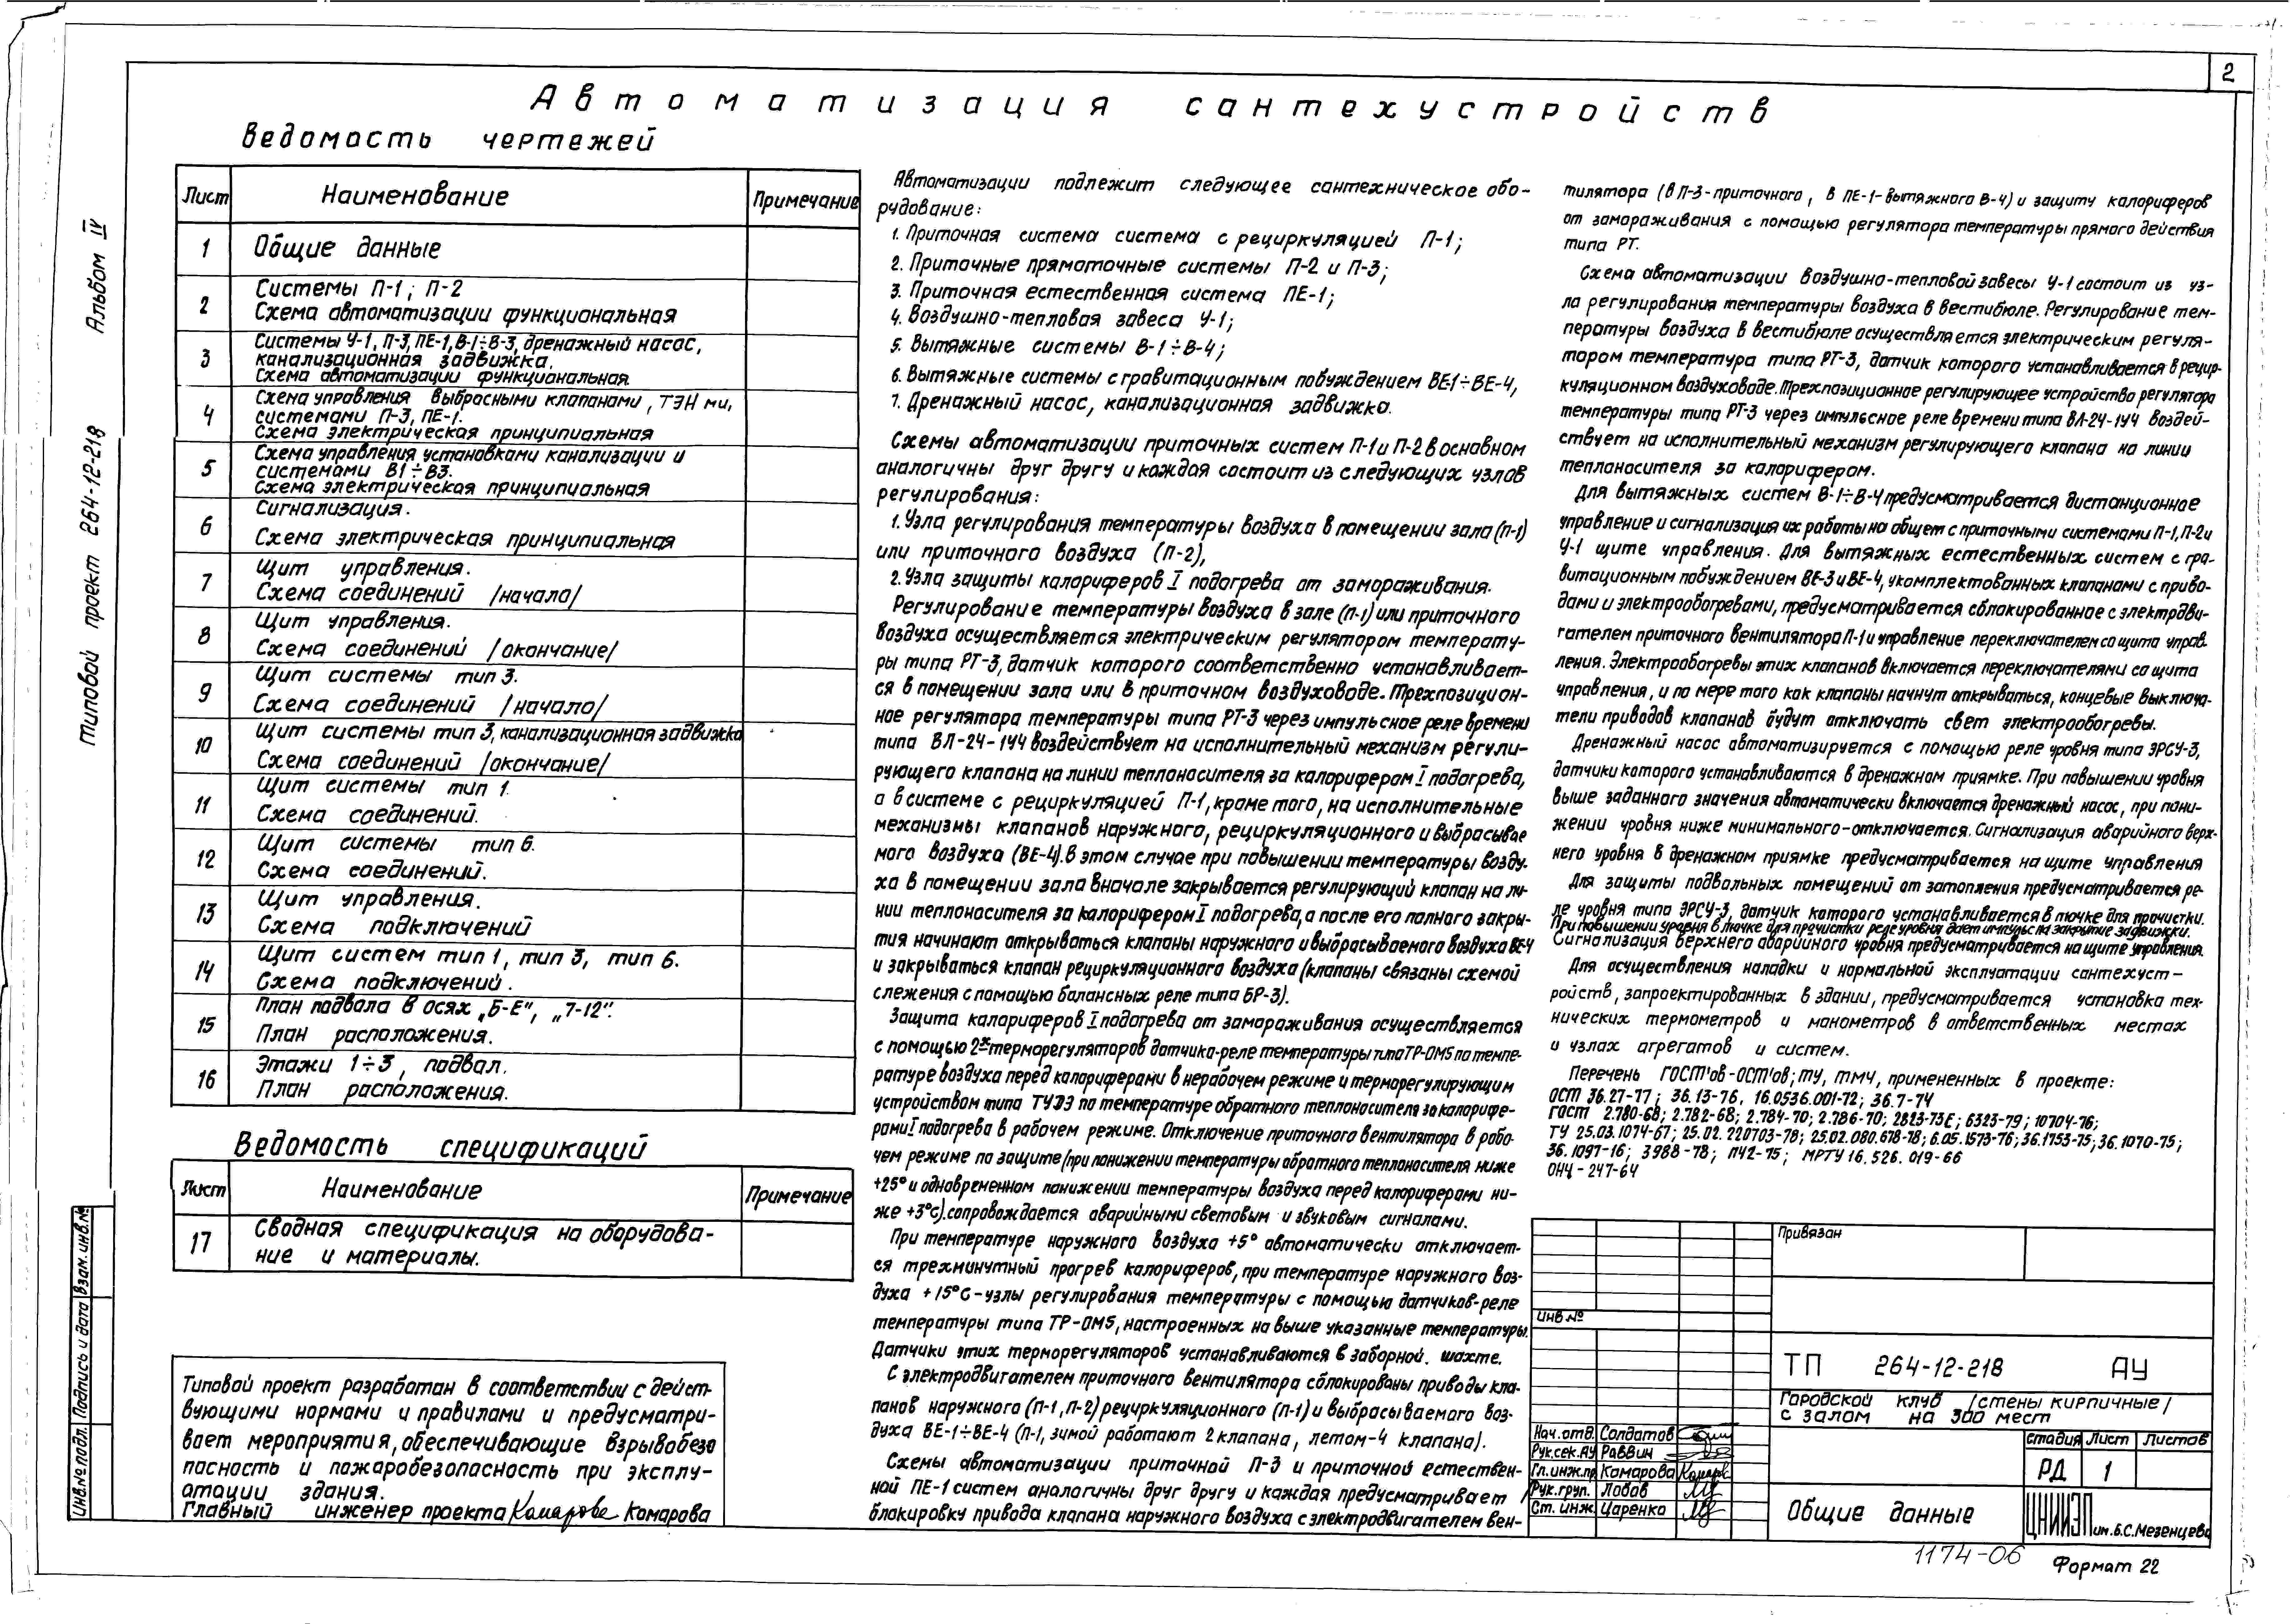 2
Автоматизация сантехустройств
Ведомость чертежей
Лист Наименование Примечание
1 Общие данные
2 Системы П-1; П-2
Схема автоматизации функциональная
3 Системы У-1, П-3, ПЕ-1, В-1÷В-3, дренажный насос,
канализационная задвижка.
Схема автоматизации функциональная
4 Схема управления выбросными клапанами, ТЭН ми,
системами П-3, ПЕ-1.
Схема электрическая принципиальная
5 Схема управления установками канализации и
системами В1÷В3.
Схема электрическая принципиальная
6 Сигнализация.
Схема электрическая принципиальная
7 Щит управления.
Схема соединений /начало/
8 Щит управления.
Схема соединений /окончание/
9 Щит системы тип 3.
Схема соединений /начало/
10 Щит системы тип 3, канализационная задвижка
Схема соединений /окончание/
11 Щит системы тип 1.
Схема соединений.
12 Щит системы тип 6.
Схема соединений.
13 Щит управления.
Схема подключений
14 Щит систем тип 1, тип 3, тип 6.
Схема подключений.
15 План подвала в осях „Б-Е", „7-12".
План расположения.
16 Этажи 1÷3, подвал.
План расположения.
Ведомость спецификаций
Лист Наименование Примечание
17 Сводная спецификация на оборудова-
ние и материалы.
Типовой проект разработан в соответствии с дейст-
вующими нормами и правилами и предусматри-
вает мероприятия, обеспечивающие взрывобезо
пасность и пожаробезопасность при эксплу-
атации здания.
Главный инженер проекта Комарова Комарова
Автоматизации подлежит следующее сантехническое обо-
рудование:
1. Приточная система система с рециркуляцией П-1;
2. Приточные прямоточные системы П-2 и П-3;
3. Приточная естественная система ПЕ-1;
4. Воздушно-тепловая завеса У-1;
5. Вытяжные системы В-1÷В-4;
6. Вытяжные системы с гравитационным побуждением ВЕ-1÷ВЕ-4,
7. Дренажный насос, канализационная задвижка.
Схемы автоматизации приточных систем П-1 и П-2 в основном
аналогичны друг другу и каждая состоит из следующих узлов
регулирования:
1. Узла регулирования температуры воздуха в помещении зала (П-1)
или приточного воздуха (П-2),
2. Узла защиты калориферов I подогрева от замораживания.
Регулирование температуры воздуха в зале (П-1) или приточного
воздуха осуществляется электрическим регулятором температу-
ры типа РТ-3, датчик которого соответственно устанавливает-
ся в помещении зала или в приточном воздуховоде. Трехпозицион-
ное регулятора температуры типа РТ-3 через импульсное реле времени
типа ВЛ-24-1У4 воздействует на исполнительный механизм регули-
рующего клапана на линии теплоносителя за калорифером I подогрева,
а в системе с рециркуляцией П-1, кроме того, на исполнительные
механизмы клапанов наружного, рециркуляционного и выбрасывае
мого воздуха (ВЕ-4). В этом случае при повышении температуры возду-
ха в помещении зала вначале закрывается регулирующий клапан на ли-
нии теплоносителя за калорифером I подогрева, а после его полного закры-
тия начинают открываться клапаны наружного и выбрасываемого воздуха ВЕ-4
и закрываться клапан рециркуляционного воздуха (клапаны связаны схемой
слежения с помощью балансных реле типа БР-3).
Защита калориферов I подогрева от замораживания осуществляется
с помощью 2х терморегуляторов датчика-реле температуры типа ТР-ОМ5 по темпе-
ратуре воздуха перед калориферами в нерабочем режиме и терморегулирующим
устройством типа ТУДЭ по температуре обратного теплоносителя за калорифе-
рами I подогрева в рабочем режиме. Отключение приточного вентилятора в рабо-
чем режиме по защите (при понижении температуры обратного теплоносителя ниже
+25° и одновременном понижении температуры воздуха перед калориферами ни-
же +3°С). сопровождается аварийными световым и звуковым сигналами.
При температуре наружного воздуха +5° автоматически отключает-
ся трехминутный прогрев калориферов, при температуре наружного воз-
духа +15°С – узлы регулирования температуры с помощью датчиков-реле
температуры типа ТР-ОМ5, настроенных на выше указанные температуры.
Датчики этих терморегуляторов устанавливаются в заборной. шахте.
С электродвигателем приточного вентилятора сблокированы приводы кла-
панов наружного (П-1, П-2) рециркуляционного (П-1) и выбрасываемого воз-
духа ВЕ-1÷ВЕ-4 (П-1, зимой работают 2 клапана, летом-4 клапана).
Схемы автоматизации приточной П-3 и приточной естествен-
ной ПЕ-1 систем аналогичны друг другу и каждая предусматривает
блокировку привода клапана наружного воздуха с электродвигателем вен-
тилятора (в П-3-приточного, в ПЕ-1-вытяжного В-4) и защиту калориферов
от замораживания с помощью регулятора температуры прямого действия
типа РТ.
Схема автоматизации воздушно-тепловой завесы У-1 состоит из уз-
ла регулирования температуры воздуха в вестибюле. Регулирование тем-
пературы воздуха в вестибюле осуществляется электрическим регуля-
тором температура типа РТ-3, датчик которого устанавливается в рецир-
куляционном воздуховоде. Трехпозиционное регулирующее устройство регулятора
температуры типа РТ-3 через импульсное реле времени типа ВЛ-24-1У4 воздей-
ствует на исполнительный механизм регулирующего клапана на линии
теплоносителя за калорифером.
Для вытяжных систем В-1÷В-4 предусматривается дистанционное
управление и сигнализация их работы на общем с приточными системами П-1, П-2 и
У-1 щите управления. Для вытяжных естественных систем с гра-
витационным побуждением ВЕ-3 и ВЕ-4, укомплектованных клапанами с приво-
дами и электрообогревами, предусматривается сблокированное с электродви-
гателем приточного вентилятора П-1 и управление переключателем со щита управ-
ления. Электрообогревы этих клапанов включается переключателями со щита
управления, и по мере того как клапаны начнут открываться, концевые выключа-
тели приводов клапанов будут отключать свет электрообогревы.
Дренажный насос автоматизируется с помощью реле уровня типа ЭРСУ-3,
датчики которого устанавливаются в дренажном приямке. При повышении уровня
выше заданного значения автоматически включается дренажный насос, при пони-
жении уровня ниже минимального-отключается. Сигнализация аварийного верх-
него уровня в дренажном приямке предусматривается на щите управления
Для защиты подвальных помещений от затопления предусматривается ре-
ле уровня типа ЭРСУ-3, датчик которого устанавливается в лючке для прочистки.
При повышении уровня в лючке для прочистки реле уровня дает импульс на закрытие задвижки.
Сигнализация верхнего аварийного уровня предусматривается на щите управления.
Для осуществления наладки и нормальной эксплуатации сантехуст-
ройств, запроектированных в здании, предусматривается установка тех-
нических термометров и манометров в ответственных местах
и узлах агрегатов и систем.
Перечень ГОСТ'ов-ОСТ'ов; ТУ, ТМЧ, примененных в проекте:
ОСТ 36.27-77; 36.13-76, 16.0536.001-72; 36.7-74
ГОСТ 2.780-68; 2.782-68; 2.784-70; 2.786-70; 2823-73Е; 6323-79; 10704-76;
ТУ 25.03.1074-67; 25.02.220703-78; 25.02.080.678-78; 6.05.1573-76; 36.1753-75; 36.1070-75;
36.1097-16; 3988-78; ПЧ2-75; МРТУ 16.526.019-66
ОНЧ-247-64
Привязан
Инв №
ТП 264-12-218 АУ
Городской клуб /стены кирпичные/
с залом на 300 мест
Нач.отд. Солдатов
Рук.сек.АУ Раввин
Гл.инж.пр Комарова Комаров
Рук.груп. Лобов
Ст. инж. Царенко
Стадия Лист Листов
РД 1
Общие данные
ЦНИИЭП им.Б.С.Мезенцева
1174-06
Формат 22
Типовой проект 264-12-218 Альбом IV
Инв.№ подл. Подпись и дата Взам.инв.№